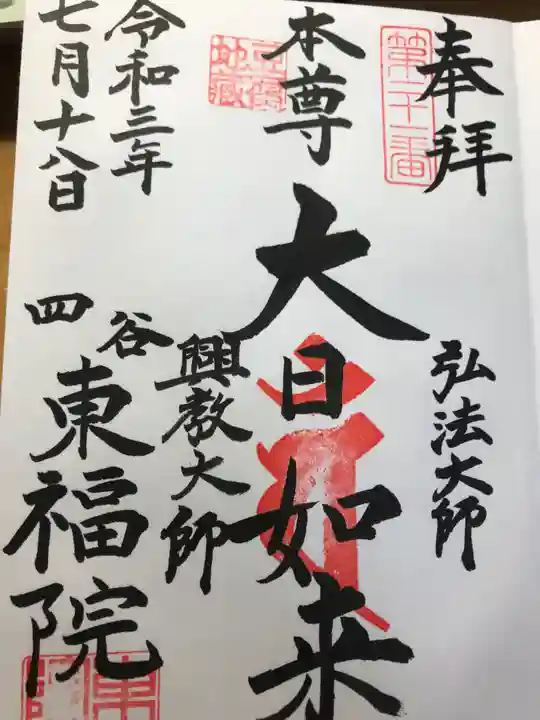 奉拝
第二十一番
弘法大師
本尊
大日如来
豆腐地蔵
興教大師
令和三年
七月十八日
四谷
東福院